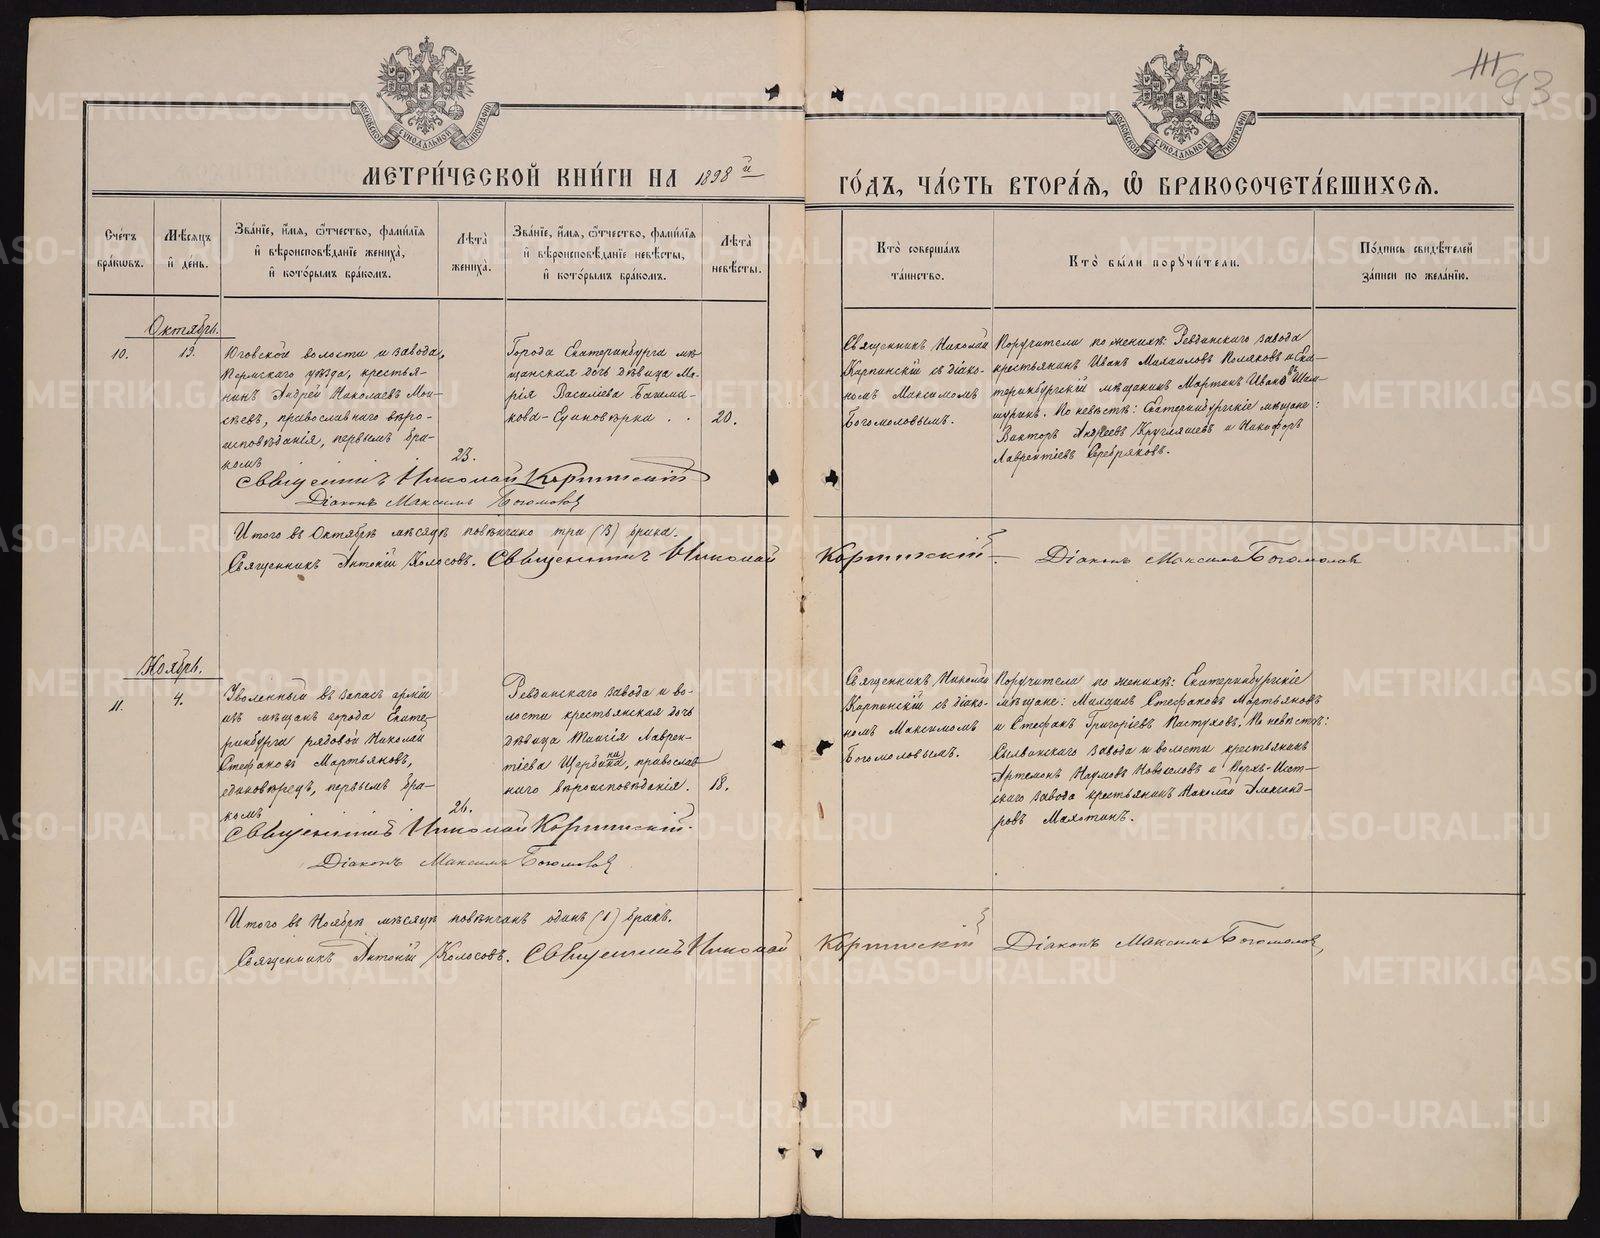 МОСКОВСКОЙ СѴНОДАЛЬНОЙ ТИПОГРАФИИ
МОСКОВСКОЙ СѴНОДАЛЬНОЙ ТИПОГРАФИИ
93
МЕТРИ́ЧЕСКОЙ КНИ́ГИ НА 1898й
ГО́ДЪ, ЧА́СТЬ ВТОРА́Я, Ѿ БРАКОСОЧЕТА́ВШИХСЯ.
Сче́тъ бра́ковъ.
Мѣ́сяцъ и҆ де́нь.
Зва́нїе, и҆́мя, ѻ҆́тчество, фами́лїя и҆ вѣроисповѣ́данїе жениха̀, и҆ кото́рымъ бра́комъ.
Лѣта̀ жениха̀.
Зва́нїе, и҆́мя, ѻ҆́тчество, фами́лїя и҆ вѣроисповѣ́данїе невѣ́сты, и҆ кото́рымъ бра́комъ.
Лѣта̀ невѣ́сты.
Кто̀ соверша́лъ та́инство.
Кто̀ бы́ли порꙋчи́тели.
По́дпись свидѣ́телей за́писи по жела́нїю.
Октябрь.
10.
19.
Юговской волости и завода,
Пермскаго уѣзда, крестья-
нинъ Андрей Николаевъ Мои-
сѣевъ, православнаго вѣро-
исповѣданія, первымъ бра-
комъ
23.
Города Екатеринбурга мѣ-
щанская дочь дѣвица Ма-
рія Васильева Башма-
кова-Единовѣрка . .
20.
Священникъ Николай
Карпинскій съ діако-
номъ Максимомъ
Богомоловымъ.
Поручители по женихѣ: Ревдинскаго завода
крестьянинъ Иванъ Михаиловъ Поляковъ и Ека-
теринбургскій мѣщанинъ Мартинъ Ивановъ Шам-
шуринъ. По невѣстѣ: Екатеринбургскіе мѣщане:
Викторъ Андреевъ Кругляшевъ и Никифоръ
Лаврентіевъ Серебряковъ.
Священникъ Николай Карпинскій
Діаконъ Максимъ Богомолов
Итого въ Октябрѣ мѣсяцѣ повѣнчано три (3) брака.
Священникъ Антоній Колосовъ. Священникъ Николай Карпинскій. Діаконъ Максимъ Богомолов
Ноябрь.
11.
4.
Уволенный въ запасъ арміи
изъ мѣщанъ города Екате-
ринбурга рядовой Николай
Стефановъ Мартьяновъ,
единовѣрецъ, первымъ бра-
комъ
26.
Ревдинскаго завода и во-
лости крестьянская дочь
дѣвица Таисія Лаврен-
тіева Щербинина, православ-
наго вѣроисповѣданія.
18.
Священникъ Николай
Карпинскій съ діако-
номъ Максимомъ
Богомоловымъ.
Поручители по женихѣ: Екатеринбургскіе
мѣщане: Михаилъ Стефановъ Мартьяновъ
и Стефанъ Григоріевъ Пастуховъ. По невѣстѣ:
Сылвинскаго завода и волости крестьянинъ
Артемонъ Наумовъ Новоселовъ и Верхъ-Исет-
скаго завода крестьянинъ Николай Александ-
ровъ Махоткинъ.
Священникъ Николай Карпинскій.
Діаконъ Максимъ Богомолов
Итого въ Ноябрѣ мѣсяцѣ повѣнчанъ одинъ (1) бракъ.
Священникъ Антоній Колосовъ. Священникъ Николай Карпинскій Діаконъ Максимъ Богомолов
METRIKI.GASO-URAL.RU